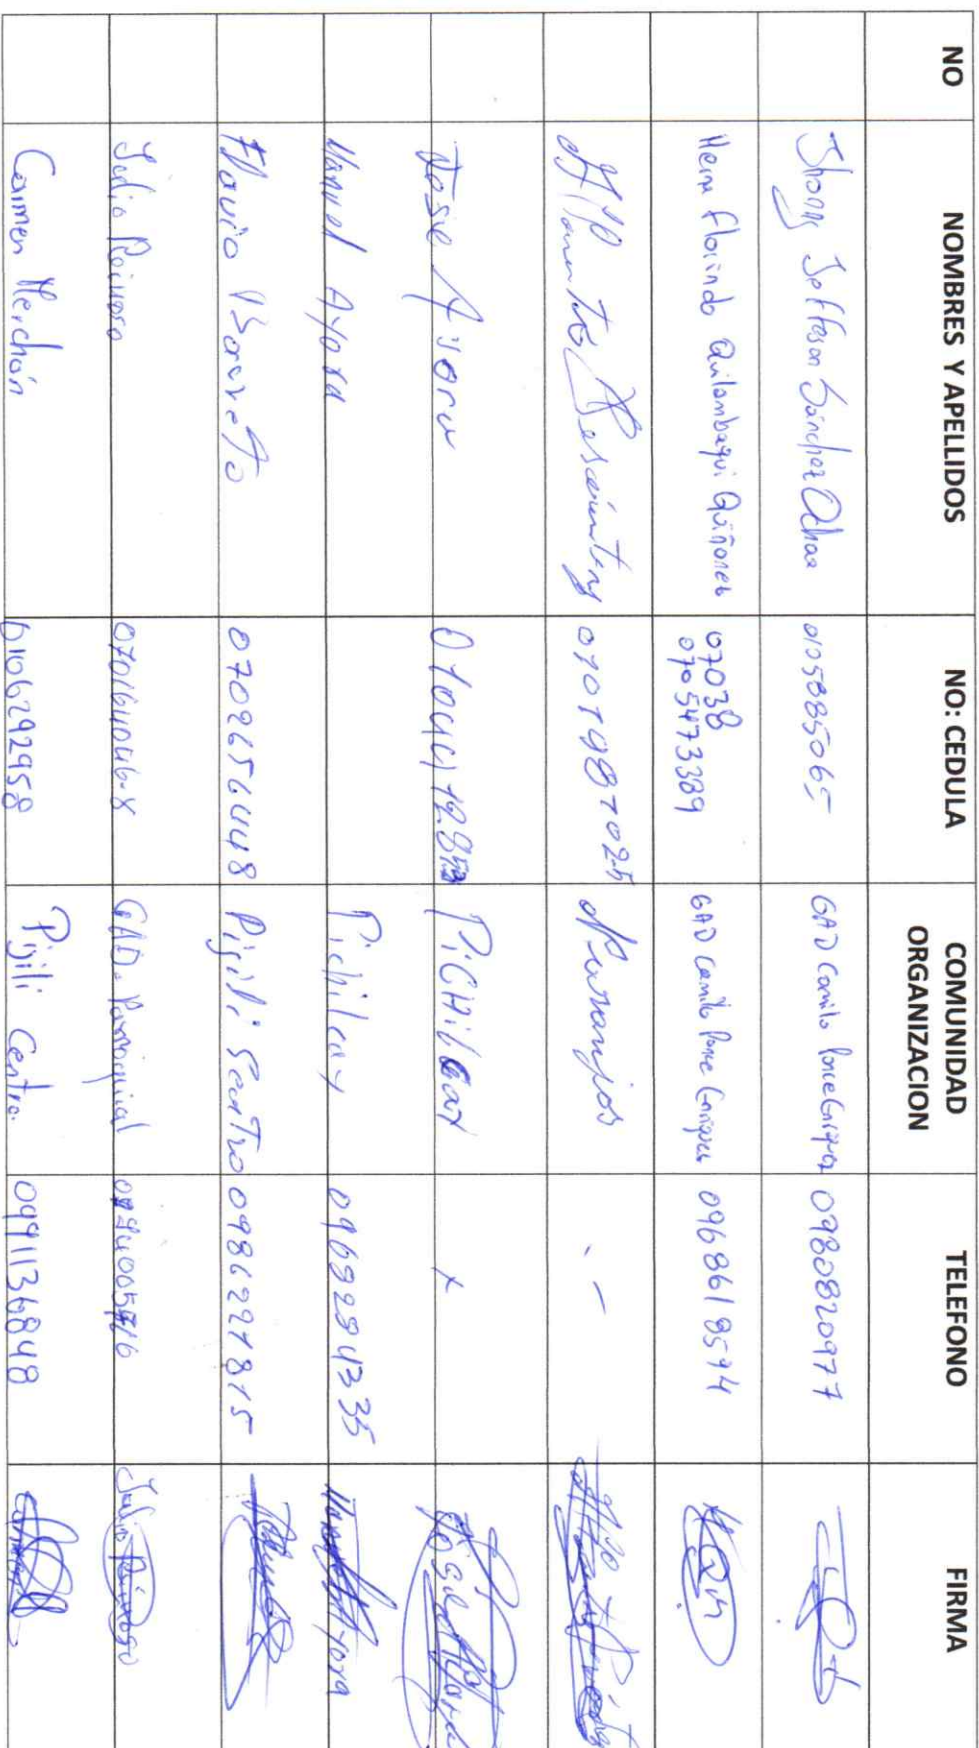 NO NOMBRES Y APELLIDOS NO: CEDULA COMUNIDAD ORGANIZACION TELEFONO FIRMA
Jhonny Jefferson Sánchez Ochoa 0105885065 GAD Camilo Ponce Enríquez 0980820977
Flocindo Quilambaqui Quiñones 07038 0705473389 GAD Camilo Ponce Enriquez 0968618594
0701987025 Naranjos . –
Jose Ayora PICHILCAY x Jose Ayora
Manuel Ayora Pichilcay 0969284335 Manuel Ayora
Flavio Barreto 0702656448 Pijili SenTro 0986227815
Julio Reinoso 070164046-8 GAD. Parroquial Julio Reinoso
Carmen Merchán 0106292958 Pijili Centro. 0991136848